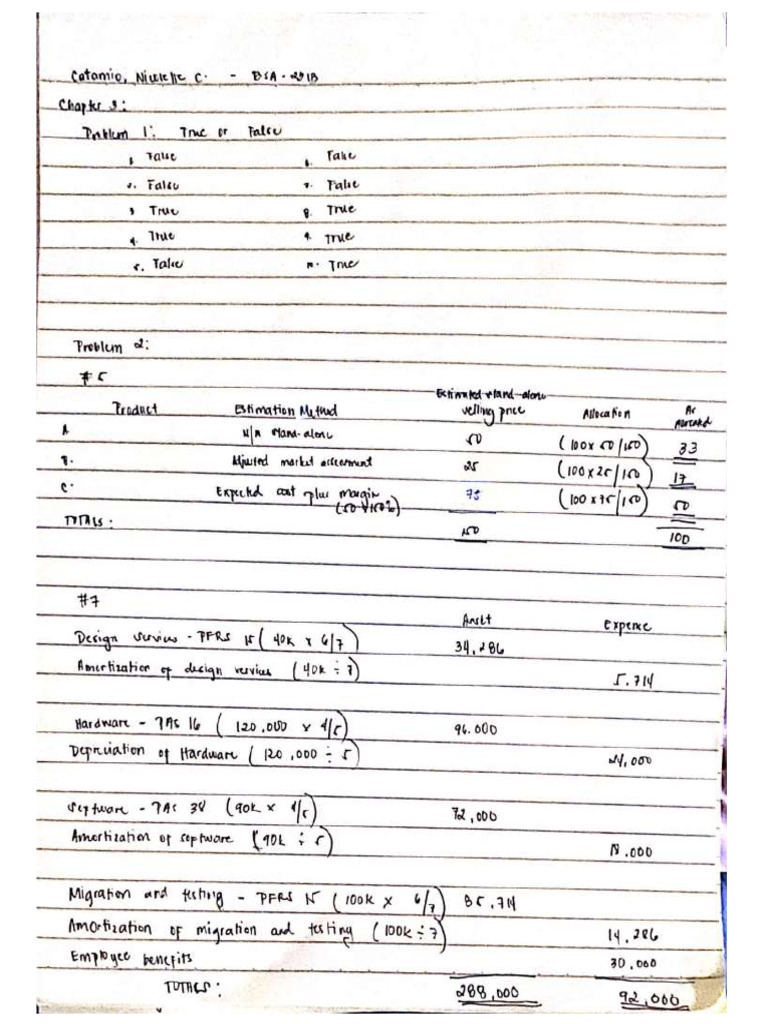 Catamio, Nicielle C. - BSA-201B
Chapter 3:
Problem 1: True or False
1. False 6. False
2. False 7. False
3 True 8. True
4. True 9. True
5. False 10. True
Problem 2:
# 5
Product Estimation Method Estimated stand-alone selling price Allocation As Allocated
A N/A stand-alone 50 (100 x 50/150) 33
B. Adjusted market assessment 25 (100 x 25/150) 17
C. Expected cost plus margin 75 (100 x 75/150) 50
(50 x 150%)
TOTALS: 150 100
#7
Asset Expense
Design services - PFRS 15 (40k x 6/7) 34,286
Amortization of design services (40k ÷ 7) 5.714
Hardware - PAS 16 (120.000 x 4/5) 96.000
Depreciation of Hardware (120,000 ÷ 5) 24,000
Software - PAS 38 (90k x 4/5) 72,000
Amortization of software (90k ÷ 5) 18.000
Migration and testing - PFRS 15 (100k x 6/7) 85.714
Amortization of migration and testing (100k ÷ 7) 14,286
Employee benefits 30.000
TOTALS: 288,000 92,000